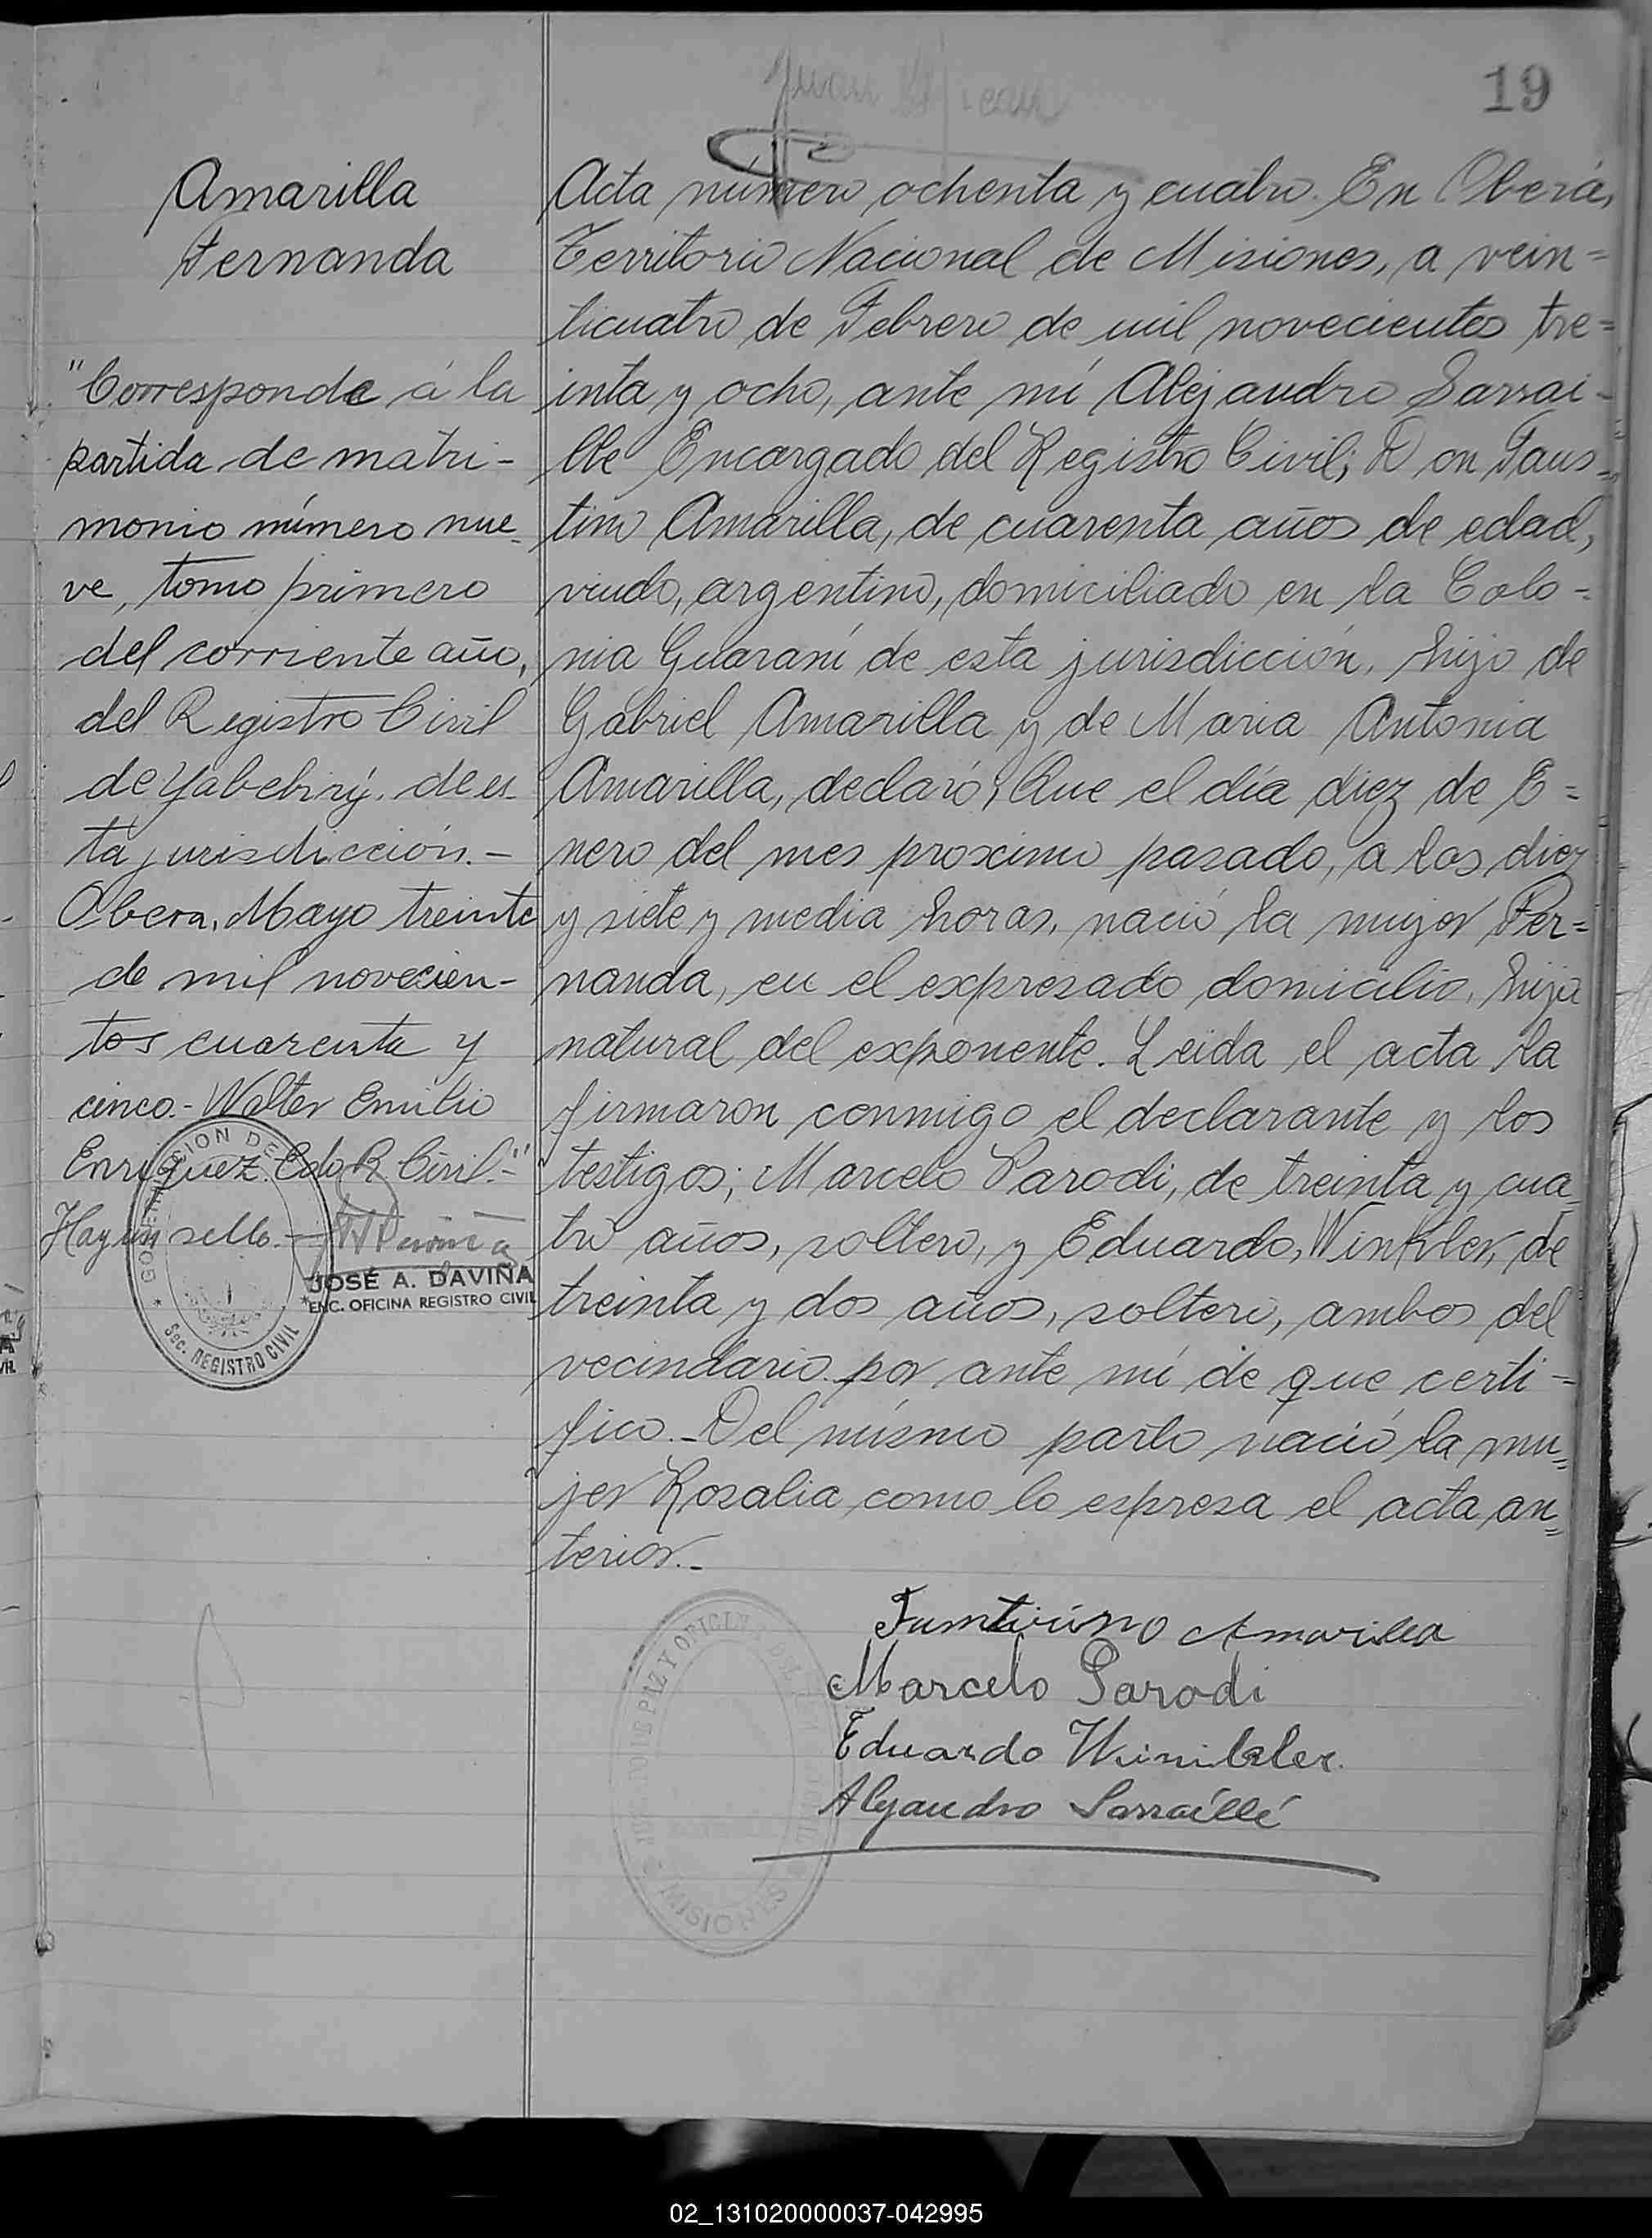 19
Juan
Amarilla
Fernanda
"Corresponde á la
partida de matri-
monio número nue-
ve, tomo primero
del corriente año,
del Registro Civil
de Yabebirý. de es-
ta jurisdicción.-
Obera, Mayo treinta
de mil novecien-
tos cuarenta y
cinco.- Walter Emilio
Enriquez. Edo R. Civil.-"
Hay un sello.-
JOSÉ A. DAVIÑA
ENC. OFICINA REGISTRO CIVIL
Sec. REGISTRO CIVIL
Acta número ochenta y cuatro. En Oberá,
Territorio Nacional de Misiones, a vein=
ticuatro de Febrero de mil novecientos tre=
inta y ocho, ante mí Alejandro Sarrai-
lle Encargado del Registro Civil; Don Faus=
tino Amarilla, de cuarenta años de edad,
viudo, argentino, domiciliado en la Colo-
nia Guaraní de esta jurisdicción, hijo de
Gabriel Amarilla y de Maria Antonia
Amarilla, declaró; Que el día diez de E=
nero del mes proximo pasado, a las diez
y siete y media horas, nació la mujer Fer=
nanda, en el expresado domicilio, hija
natural del exponente. Leida el acta la
firmaron conmigo el declarante y los
testigos; Marcelo Parodi, de treinta y cua=
tro años, soltero, y Eduardo, Winkler, de
treinta y dos años, soltero, ambos del
vecindario por ante mí de que certi-
fico.- Del mismo parto nació la mu=
jer Rosalia como lo espresa el acta an=
terior.-
Amarilla
Marcelo Parodi
Eduardo Winikler.
Alejandro Sarraillé
JUZGADO DE PAZ Y OFICINA DEL
MISIONES
02_131020000037-042995